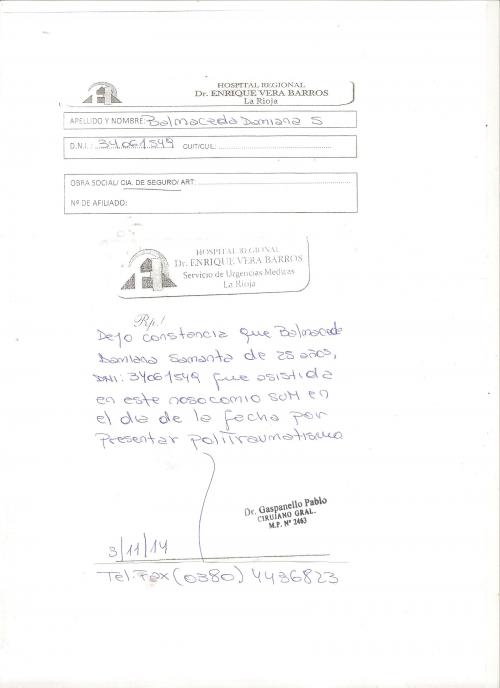 HOSPITAL REGIONAL
Dr. ENRIQUE VERA BARROS
La Rioja
APELLIDO Y NOMBRE: Balmaceda Damiana S
D.N.I.: 34061549 CUIT/CUIL:
OBRA SOCIAL/ CIA. DE SEGURO/ ART:
Nº DE AFILIADO:
HOSPITAL REGIONAL
Dr. ENRIQUE VERA BARROS
Servicio de Urgencias Medicas
La Rioja
Rp./
Dejo constancia que Balmaceda
Damiana Samanta de 25 años,
DNI: 34061549 fue asistida
en este nosocomio SUM en
el dia de la fecha por
Presentar politraumatismo
Dr. Gaspanello Pablo
CIRUJANO GRAL.
M.P. Nº 2463
3/11/14
Tel: Fax (0380) 4436823